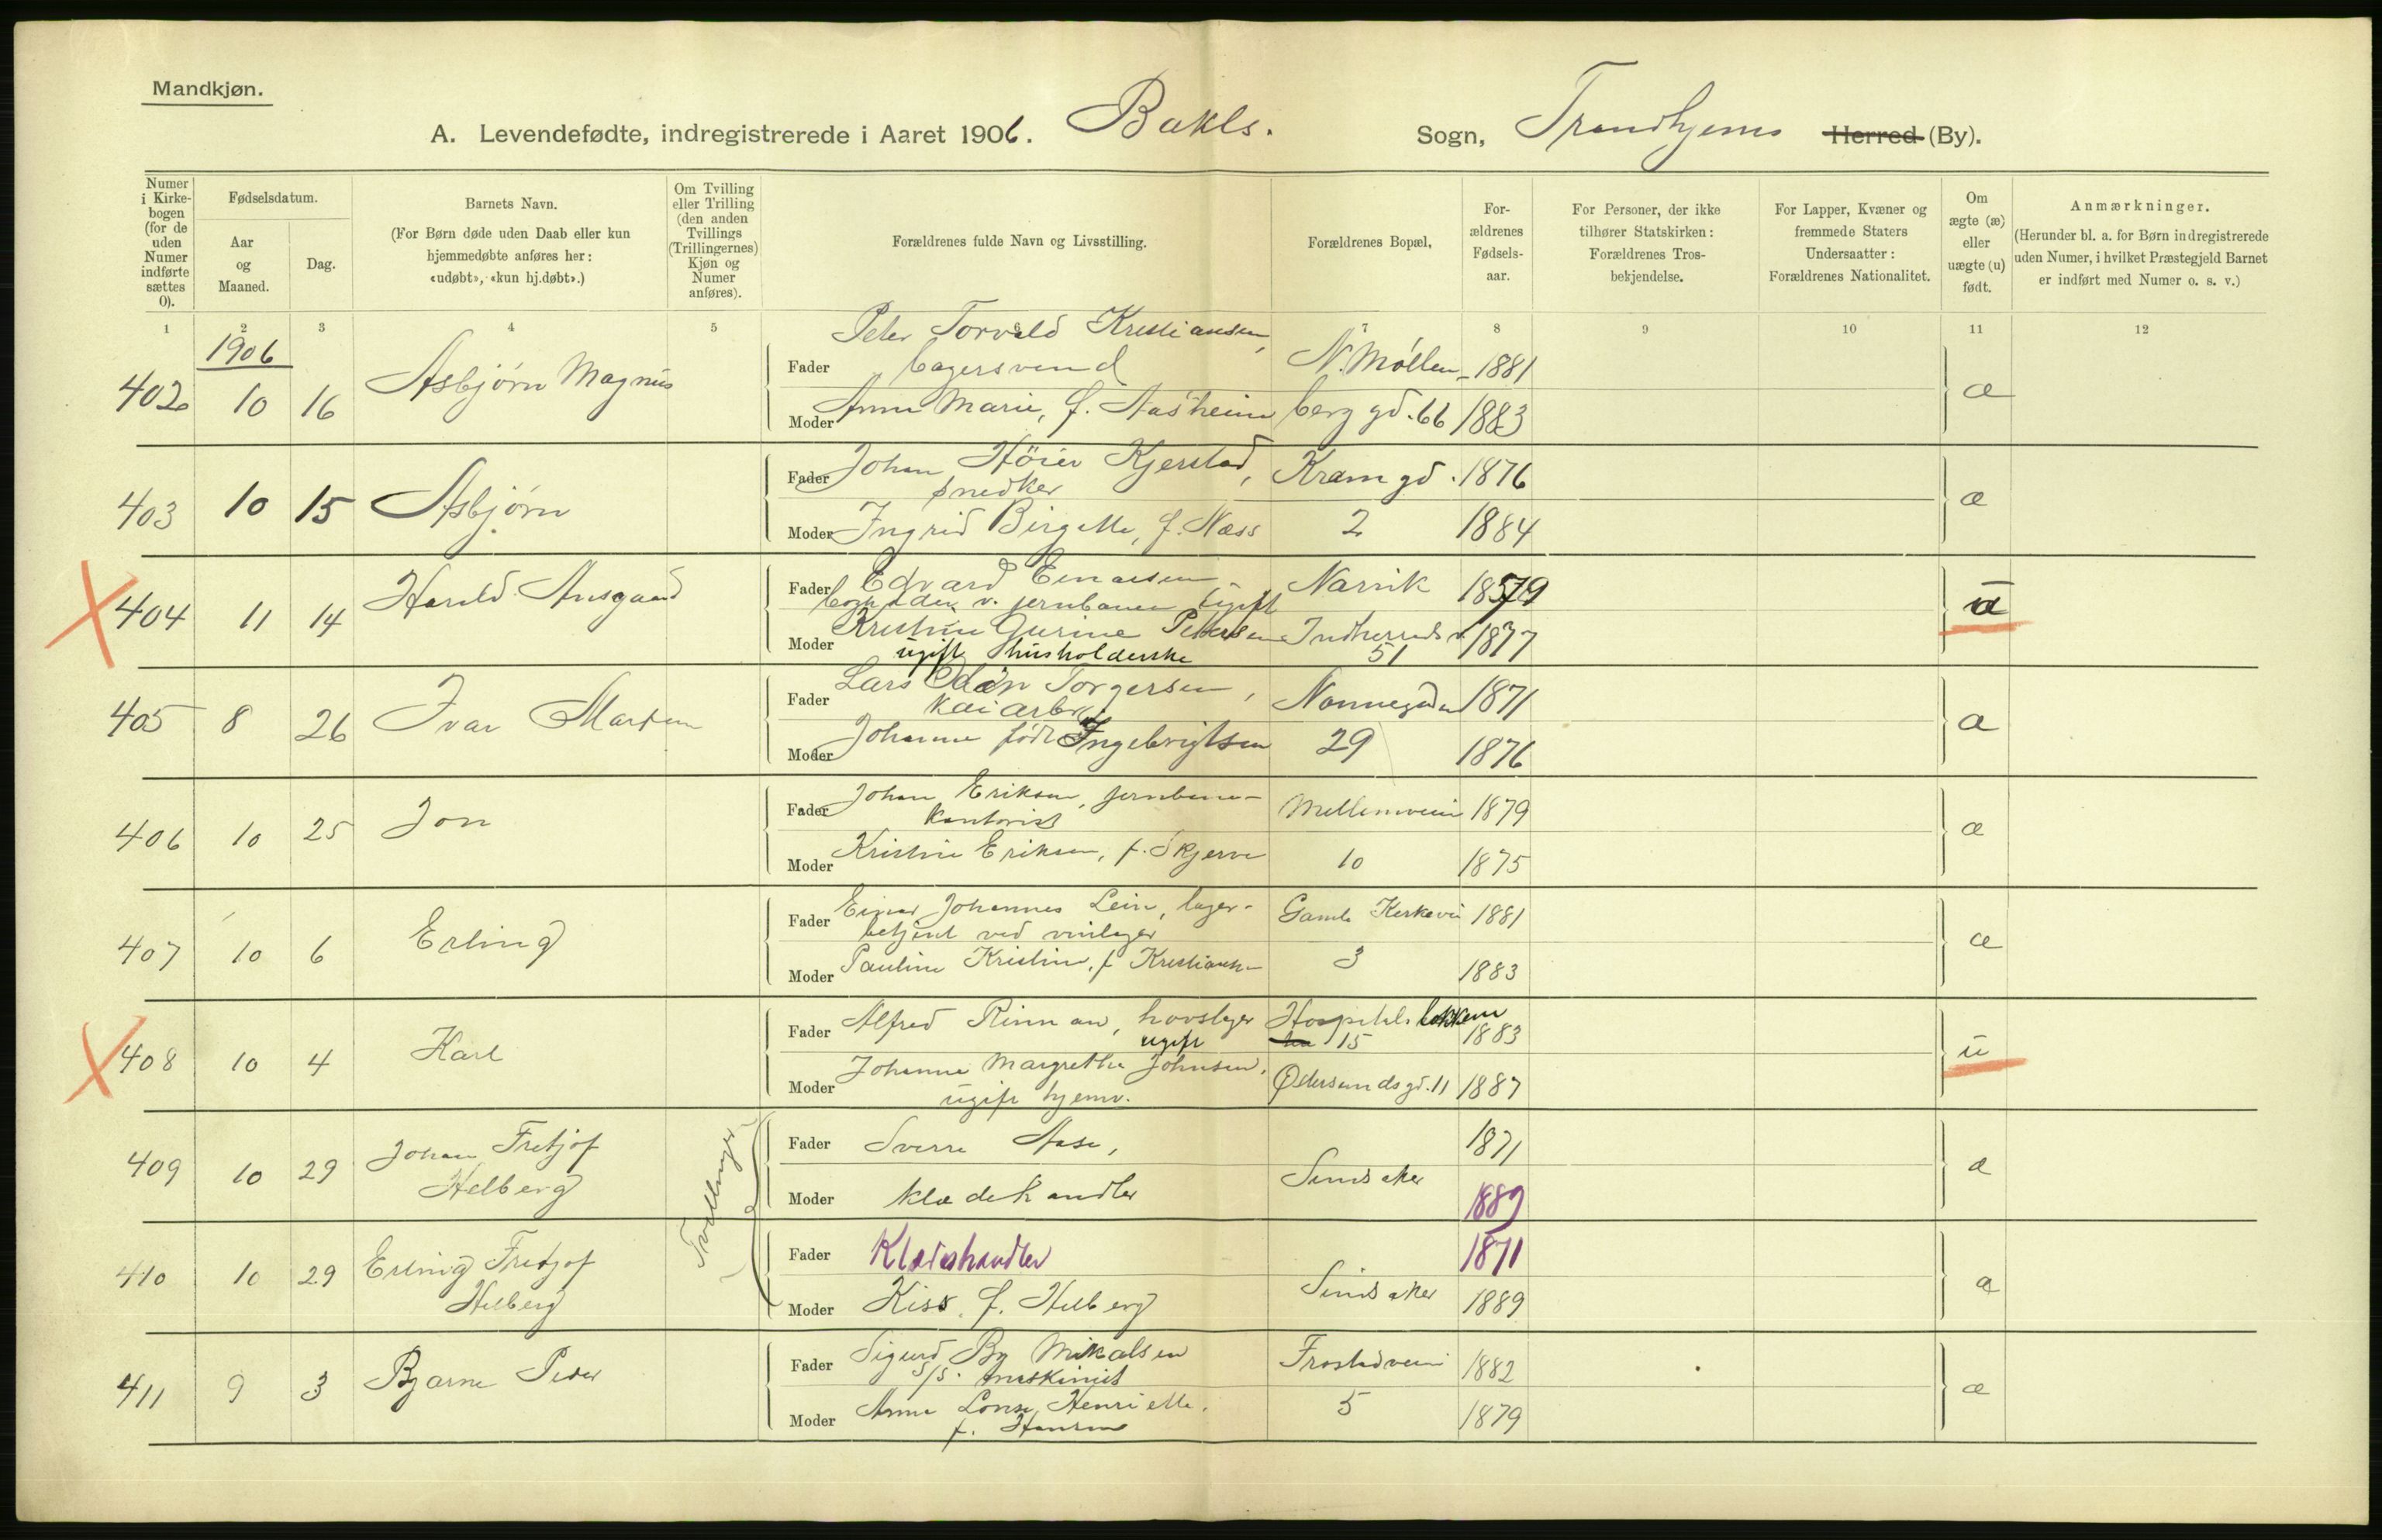 Mandkjøn.
A. Levendefødte, indregistrerede i Aaret 1906. Bakls. Sogn, Trondhjems Herred (By).
Numer i Kirkebogen (for de uden Numer indførte sættes 0).
Fødselsdatum.
Aar og Maaned.
Dag.
Barnets Navn.
(For Børn døde uden Daab eller kun hjemmedøbte anføres her: «udøbt», «kun hj.døbt».)
Om Tvilling eller Trilling (den anden Tvillings (Trillingernes) Kjøn og Numer anføres).
Forældrenes fulde Navn og Livsstilling.
Forældrenes Bopæl,
Forældrenes Fødselsaar.
For Personer, der ikke tilhører Statskirken: Forældrenes Trosbekjendelse.
For Lapper, Kvæner og fremmede Staters Undersaatter: Forældrenes Nationalitet.
Om ægte (æ) eller uægte (u) født.
Anmærkninger.
(Herunder bl. a. for Børn indregistrerede uden Numer, i hvilket Præstegjeld Barnet er indført med Numer o. s. v.)
1 2 3 4 5 6 7 8 9 10 11 12
1906
402 10 16 Asbjørn Magnus
Fader Peter Torvald Kristiansen, bagersvend N. Møllen- 1881
Moder Anna Marie, f. Aasheim berg gd. 66 1883 æ
403 10 15 Asbjørn
Fader Johan Höier Kjerstad, snedker Kramgd. 1876
Moder Ingrid Birgitte, f. Næss 2 1884 æ
404 11 14 Harald Ansgard
Fader Edvard Einarsen v. jernbanen ugift Narvik 1879
Moder Kristine Gurine Pettersen ugift husholderske Indherreds v. 51 1877 u
405 8 26 Ivar Martin
Fader Lars Odin Torgersen, kaiarb. Nonnegaden 1871
Moder Johanne født Ingebrigtsen 29 1876 æ
406 10 25 Jon
Fader Johan Eriksen, jernbane- kontorist Mellemveien 1879
Moder Kristine Eriksen, f. Skjerve 10 1875 æ
407 10 6 Erling
Fader Einar Johannes Lein, lager- betjent ved vinlager Gamle Kirkevei 1881
Moder Pauline Kristine, f. Kristiansen 3 1883 æ
408 10 4 Karl
Fader Alfred Rinnan, hovslager ugift Hospitals løkken 15 1883
Moder Johanna Margrethe Johnsen, ugift hjemv. Ødersundsgd. 11 1887 u
409 10 29 Johan Fretjof Helberg
Tvillinger
Fader Sverre Aase, 1871
Moder klædehandler Sindsaker 1889 æ
410 10 29 Erling Fretjof Helberg
Fader Klædeshandler 1871
Moder Kiss, f. Helberg Sindsaker 1889 æ
411 9 3 Bjarne Peder
Fader Sigurd By Mikalsen S/S. maskinist Frostadveien 1882
Moder Anna Lovise Henriette, f. Hansen 5 1879 æ